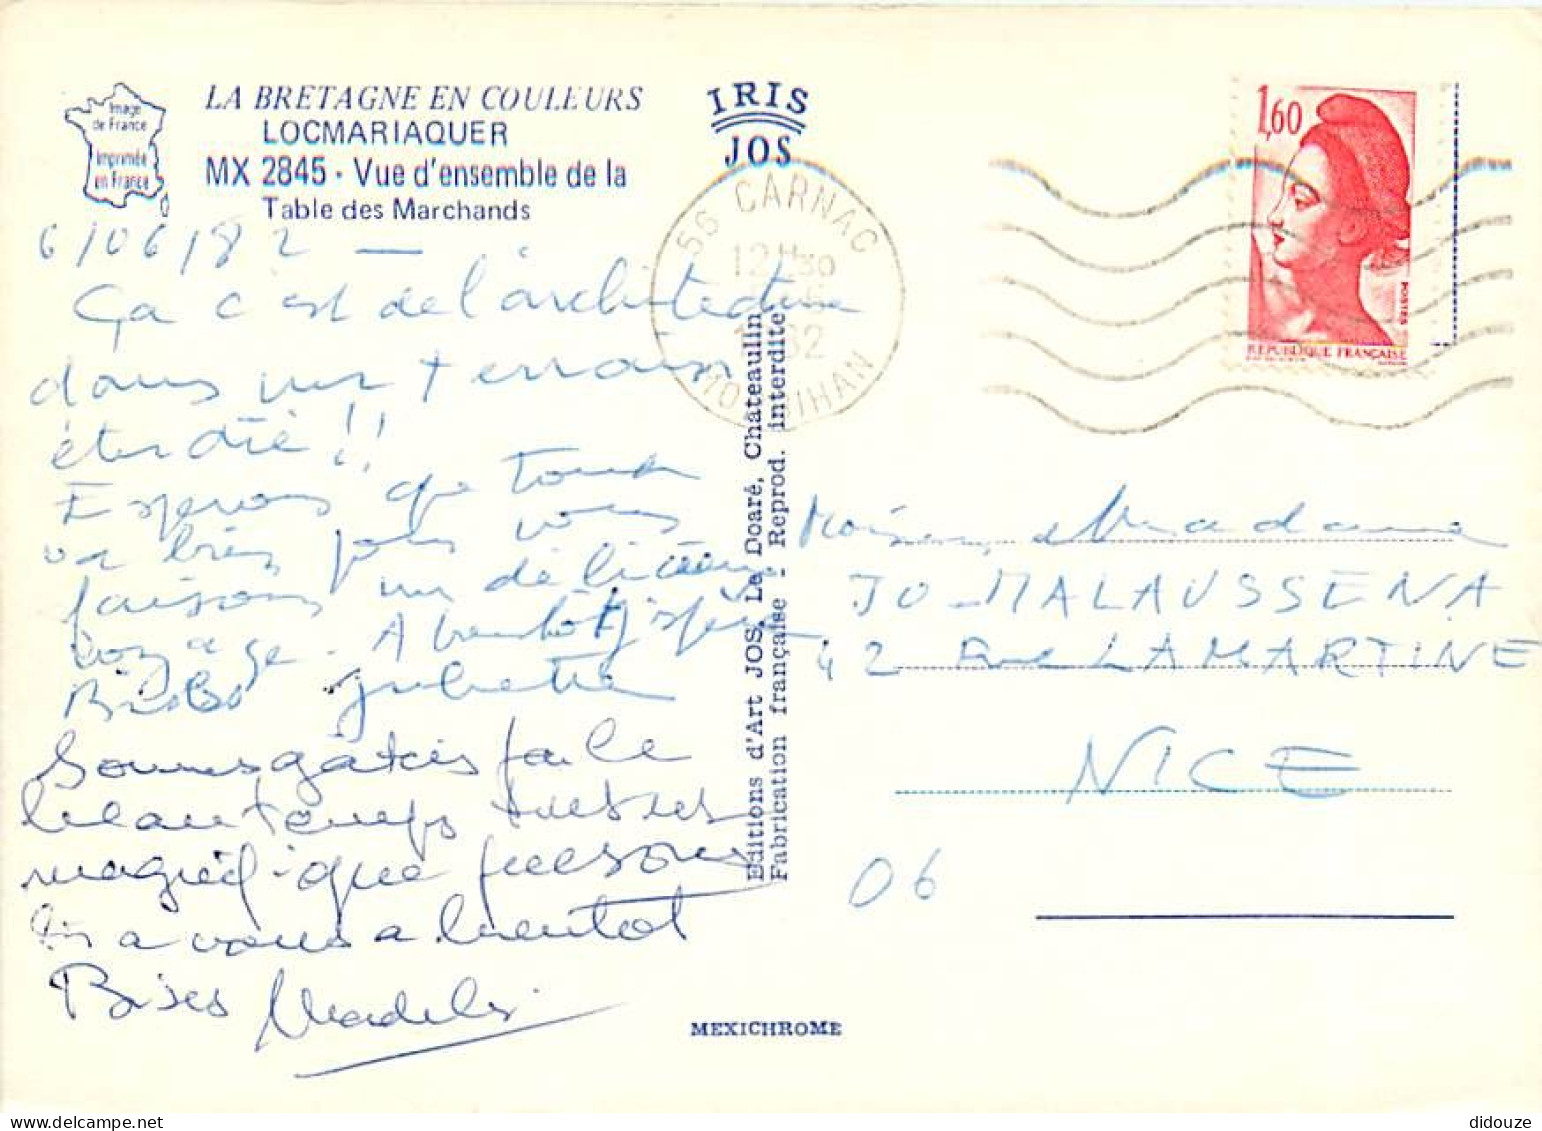 Image
de France
Imprimée
en France
LA BRETAGNE EN COULEURS
LOCMARIAQUER
MX 2845 - Vue d'ensemble de la
Table des Marchands
IRIS
JOS
6/06/82 —
Ça c'est de l'architecture
dans un terrain
étudié!!
Esperons que tout
va bien pour vous
faisons un délicieux
voyage. A bientôt j'espère
Bisbs Juliette
Sommes gatées par le
beau temps
magnifique pensons
a vous a bientot
Bises
56 CARNAC
12H30
MORBIHAN
1,60
POSTES
REPUBLIQUE FRANÇAISE
Editions d'Art JOS, Le Doaré, Châteaulin
Fabrication française - Reprod. interdite
Madame
JO MALAUSSENA
42 Rue LAMARTINE
NICE
06
MEXICHROME
didouze